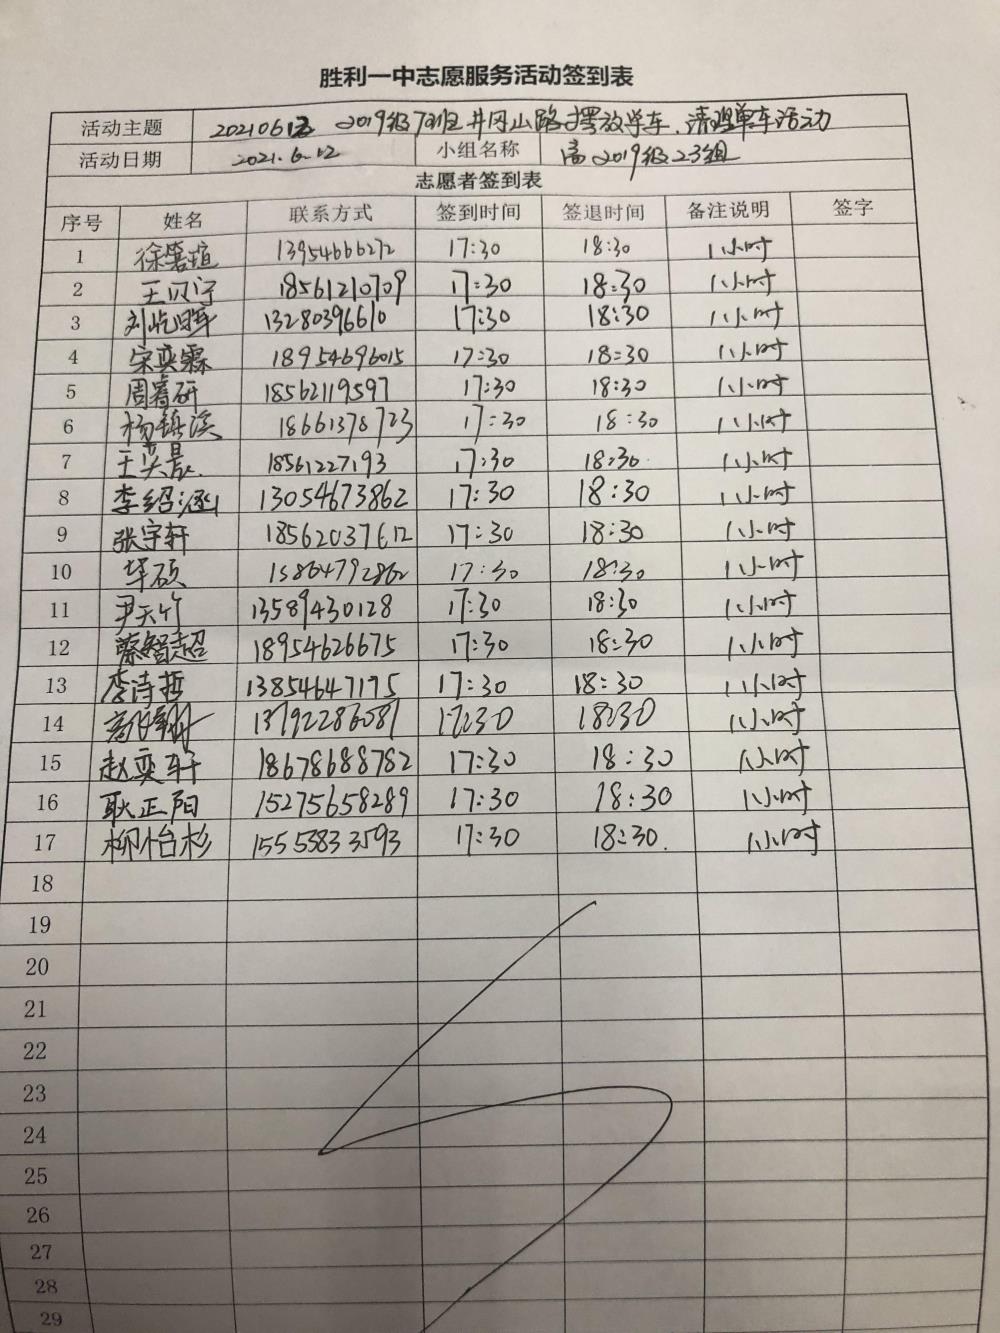 胜利一中志愿服务活动签到表
活动主题 20210612 2019级7班 井冈山路摆放单车、清理单车活动
活动日期 2021.6.12 小组名称 高2019级23组
志愿者签到表
序号 姓名 联系方式 签到时间 签退时间 备注说明 签字
1 徐 瑄 13954666272 17:30 18:30 1小时
2 王贝宁 18561210709 17:30 18:30 1小时
3 刘屹晖 13280396610 17:30 18:30 1小时
4 宋奕霖 18954696015 17:30 18:30 1小时
5 周睿研 18562119597 17:30 18:30 1小时
6 杨镇溪 18661378723 17:30 18:30 1小时
7 王奕晨 18561227193 17:30 18:30 1小时
8 李绍涵 13054673862 17:30 18:30 1小时
9 张宇轩 18562037612 17:30 18:30 1小时
10 华硕 15864792862 17:30 18:30 1小时
11 尹天竹 13589430128 17:30 18:30 1小时
12 蔡智超 18954626675 17:30 18:30 1小时
13 李诗哲 13854647175 17:30 18:30 1小时
14 13792286081 17:30 18:30 1小时
15 赵奕轩 18678688782 17:30 18:30 1小时
16 耿正阳 15275658289 17:30 18:30 1小时
17 柳怡杉 15558833593 17:30 18:30 1小时
18
19
20
21
22
23
24
25
26
27
28
29